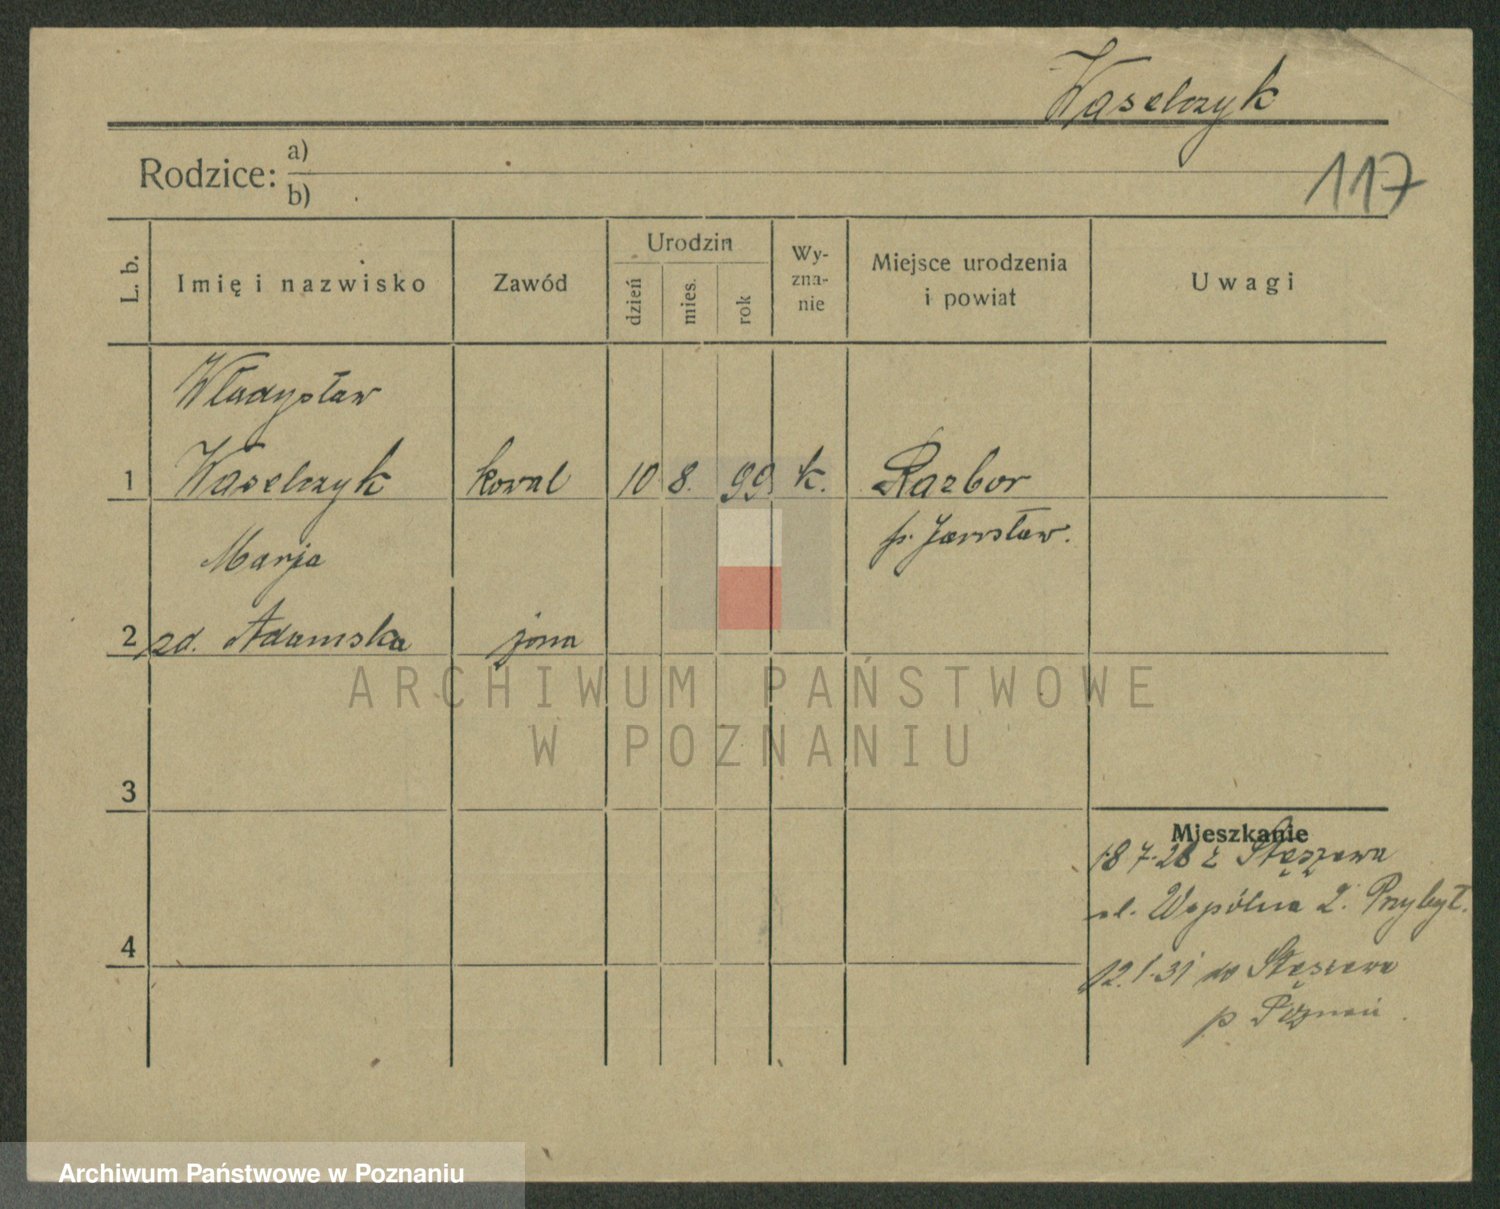 Waselczyk
117
Rodzice: a)
b)
L. b.
Imię i nazwisko
Zawód
Urodzin
dzień
mies.
rok
Wy-
zna-
nie
Miejsce urodzenia
i powiat
Uwagi
Władysław
1 Waselczyk kowal 10 8. 99 k. Razbor
p. Jarosław.
Marja
2 zd. Adamska żona
3
4
Mieszkanie
18 7.28 z Stęszewa
ul. Wspólna 2. Przybył.
12.1.31 do Stęszewa
p Poznań.
ARCHIWUM PAŃSTWOWE
W POZNANIU
Archiwum Państwowe w Poznaniu